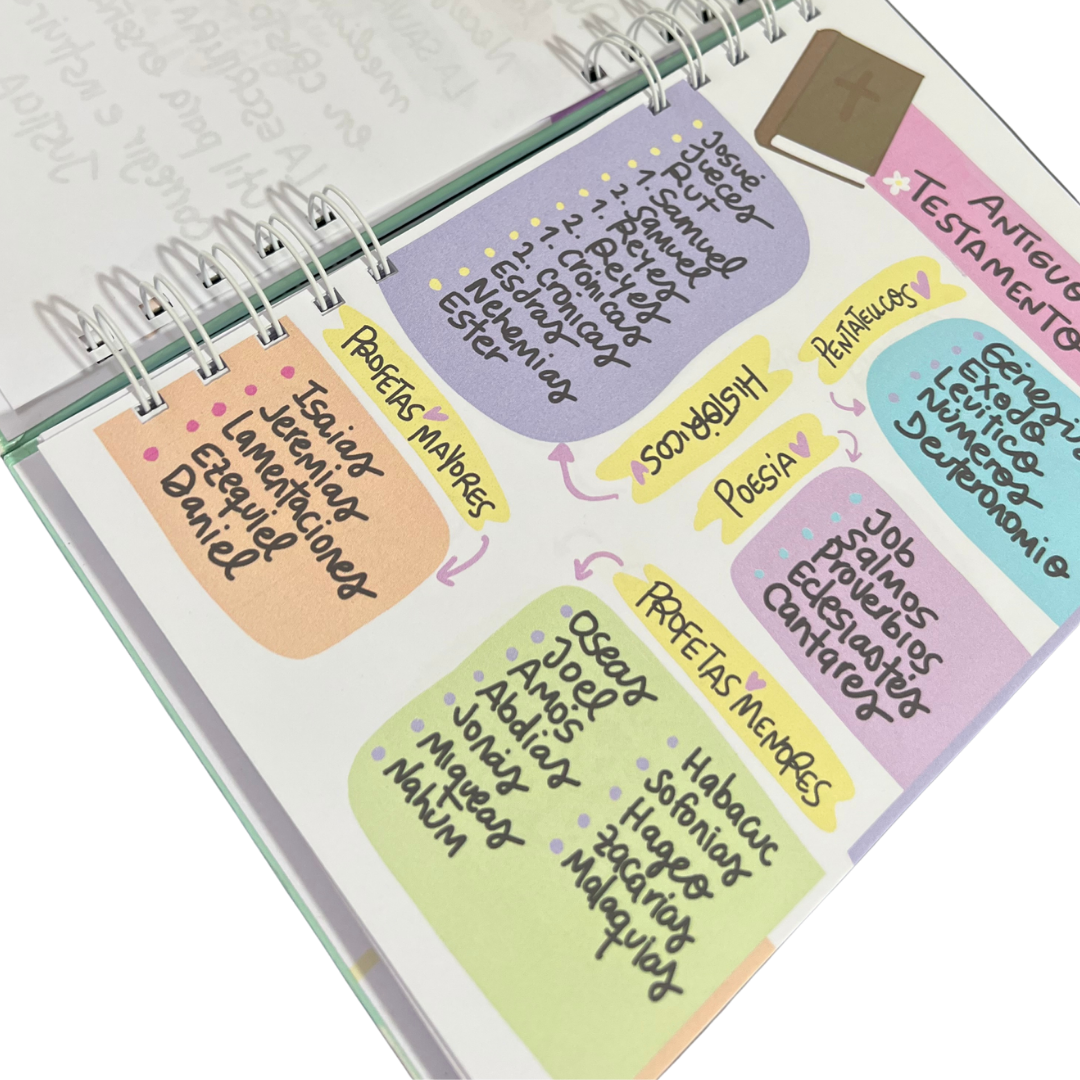 ANTIGUO
TESTAMENTO
PENTATEUCOS
Génesis
Exodo
Levítico
Números
Deuteronomio
HISTÓRICOS
Josué
Jueces
Rut
1. Samuel
2. Samuel
1. Reyes
2. Reyes
1. Crónicas
2. Crónicas
Esdras
Nehemias
Ester
POESÍA
Job
Salmos
Proverbios
Eclesiastés
Cantares
PROFETAS MAYORES
Isaias
Jeremias
Lamentaciones
Ezequiel
Daniel
PROFETAS MENORES
Oseas
Joel
Amós
Abdias
Jonas
Miqueas
Nahum
Habacuc
Sofonias
Hageo
Zacarias
Malaquias